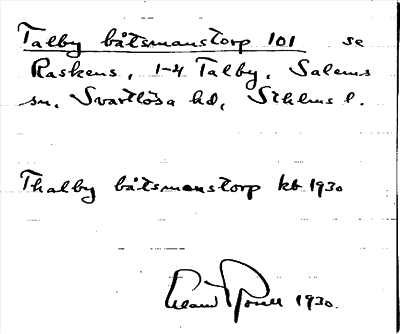 Talby båtsmanstorp 101 se
Raskens, 1-4 Talby, Salems
sn, Svartlösa hd, Sthlms l.
Thalby båtsmanstorp kb 1930
1930.